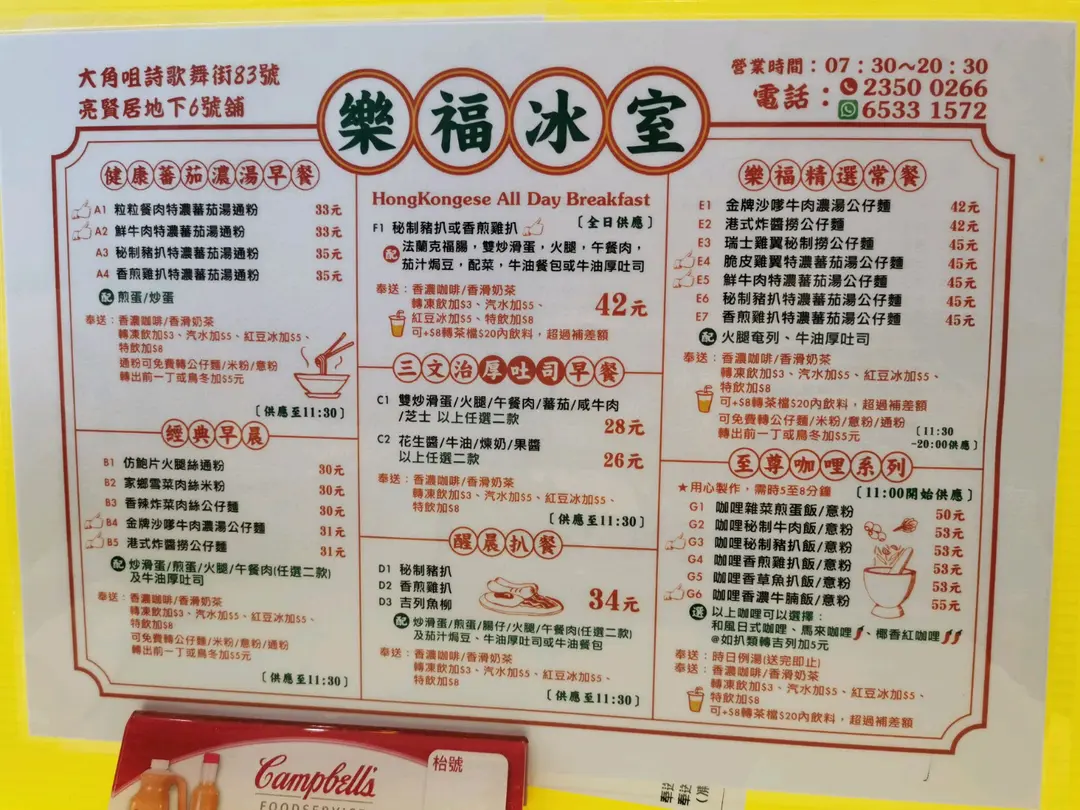 大角咀詩歌舞街83號
亮賢居地下6號舖
樂福冰室
營業時間：07：30～20：30
電話：2350 0266
6533 1572
健康蕃茄濃湯早餐
A1 粒粒餐肉特濃蕃茄湯通粉 33元
A2 鮮牛肉特濃蕃茄湯通粉 33元
A3 秘制豬扒特濃蕃茄湯通粉 35元
A4 香煎雞扒特濃蕃茄湯通粉 35元
配 煎蛋/炒蛋
奉送：香濃咖啡/香滑奶茶
轉凍飲加$3、汽水加$5、紅豆冰加$5、
特飲加$8
通粉可免費轉公仔麵/米粉/意粉
轉出前一丁或烏冬加$5元
〔供應至11:30〕
經典早晨
B1 仿鮑片火腿絲通粉 30元
B2 家鄉雪菜肉絲米粉 30元
B3 香辣炸菜肉絲公仔麵 30元
B4 金牌沙嗲牛肉濃湯公仔麵 31元
B5 港式炸醬撈公仔麵 31元
配 炒滑蛋/煎蛋/火腿/午餐肉(任選二款)
及牛油厚吐司
奉送：香濃咖啡/香滑奶茶
轉凍飲加$3、汽水加$5、紅豆冰加$5、
特飲加$8
可免費轉公仔麵/米粉/意粉/通粉
轉出前一丁或烏冬加$5元
〔供應至11:30〕
HongKongese All Day Breakfast
〔全日供應〕
F1 秘制豬扒或香煎雞扒
配 法蘭克福腸，雙炒滑蛋，火腿，午餐肉，
茄汁焗豆，配菜，牛油餐包或牛油厚吐司
奉送：香濃咖啡/香滑奶茶
轉凍飲加$3、汽水加$5、
紅豆冰加$5、特飲加$8
可+$8轉茶檔$20內飲料，超過補差額
42元
三文治厚吐司早餐
C1 雙炒滑蛋/火腿/午餐肉/蕃茄/咸牛肉
/芝士 以上任選二款 28元
C2 花生醬/牛油/煉奶/果醬
以上任選二款 26元
奉送：香濃咖啡/香滑奶茶
轉凍飲加$3、汽水加$5、紅豆冰加$5、
特飲加$8
〔供應至11:30〕
醒晨扒餐
D1 秘制豬扒
D2 香煎雞扒
D3 吉列魚柳
34元
配 炒滑蛋/煎蛋/腸仔/火腿/午餐肉(任選二款)
及茄汁焗豆、牛油厚吐司或牛油餐包
奉送：香濃咖啡/香滑奶茶
轉凍飲加$3、汽水加$5、紅豆冰加$5、
特飲加$8
〔供應至11:30〕
樂福精選常餐
E1 金牌沙嗲牛肉濃湯公仔麵 42元
E2 港式炸醬撈公仔麵 42元
E3 瑞士雞翼秘制撈公仔麵 45元
E4 脆皮雞翼特濃蕃茄湯公仔麵 45元
E5 鮮牛肉特濃蕃茄湯公仔麵 45元
E6 秘制豬扒特濃蕃茄湯公仔麵 45元
E7 香煎雞扒特濃蕃茄湯公仔麵 45元
配 火腿奄列、牛油厚吐司
奉送：香濃咖啡/香滑奶茶
轉凍飲加$3、汽水加$5、紅豆冰加$5、
特飲加$8
可+$8轉茶檔$20內飲料，超過補差額
可免費轉公仔麵/米粉/意粉/通粉
轉出前一丁或烏冬加$5元
〔11:30
-20:00供應〕
至尊咖喱系列
★用心製作，需時5至8分鐘 〔11:00開始供應〕
G1 咖喱雜菜煎蛋飯/意粉 50元
G2 咖喱秘制牛肉飯/意粉 53元
G3 咖喱秘制豬扒飯/意粉 53元
G4 咖喱香煎雞扒飯/意粉 53元
G5 咖喱香草魚扒飯/意粉 53元
G6 咖喱香濃牛腩飯/意粉 55元
選 以上咖喱可以選擇：
和風日式咖喱、馬來咖喱、椰香紅咖喱
@如扒類轉吉列加5元
奉送：時日例湯(送完即止)
奉送：香濃咖啡/香滑奶茶
轉凍飲加$3、汽水加$5、紅豆冰加$5、
特飲加$8
可+$8轉茶檔$20內飲料，超過補差額
Campbell's
FOODSERVICE
枱號